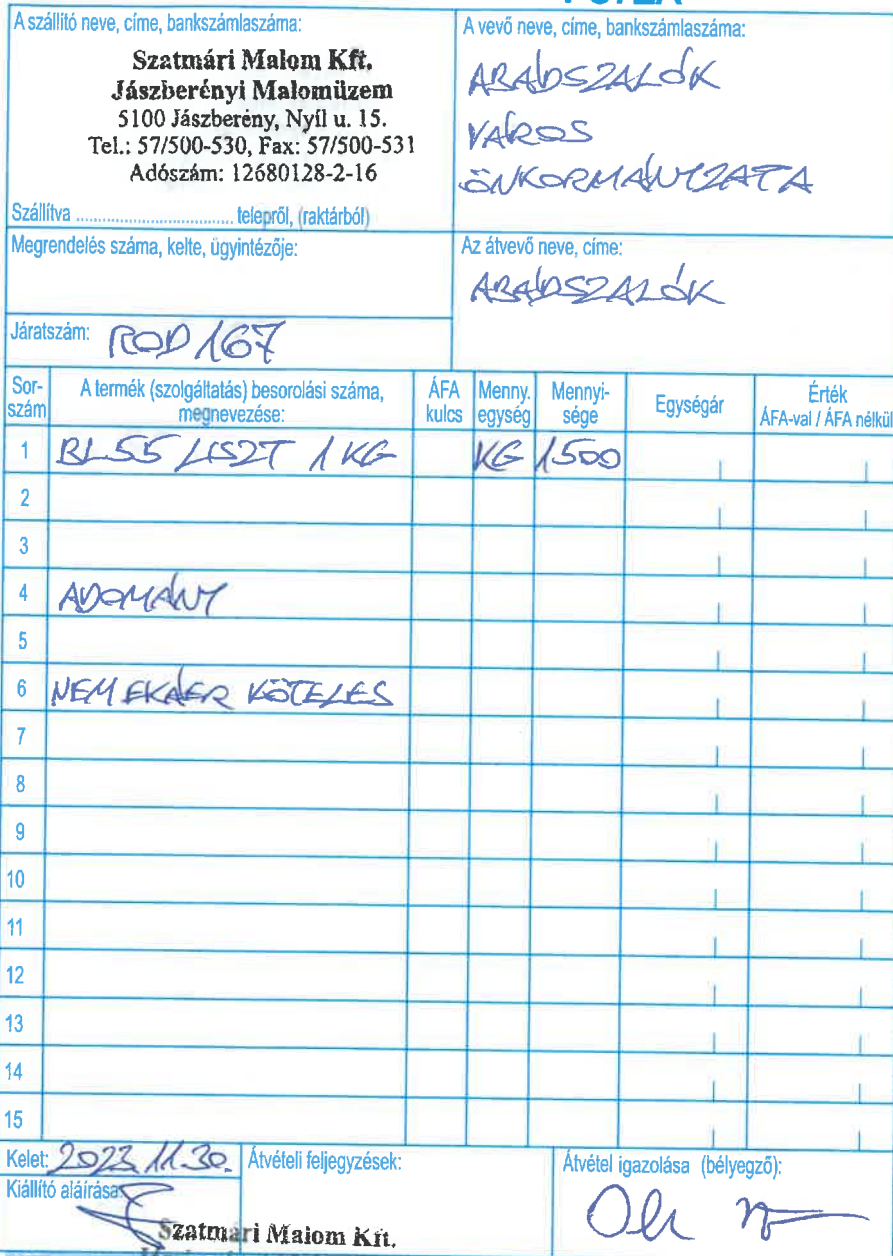 A szállító neve, címe, bankszámlaszáma:
Szatmári Malom Kft.
Jászberényi Malomüzem
5100 Jászberény, Nyíl u. 15.
Tel.: 57/500-530, Fax: 57/500-531
Adószám: 12680128-2-16
Szállítva .................................. telepről, (raktárból)
A vevő neve, címe, bankszámlaszáma:
ABÁDSZALÓK
VÁROS
ÖNKORMÁNYZATA
Megrendelés száma, kelte, ügyintézője:
Az átvevő neve, címe:
ABÁDSZALÓK
Járatszám: ROD 167
Sor-szám A termék (szolgáltatás) besorolási száma, megnevezése: ÁFA kulcs Menny. egység Mennyi-sége Egységár Érték ÁFA-val / ÁFA nélkül
1 BL55 LISZT 1 KG KG 1500
2
3
4 ADOMÁNY
5
6 NEM EKÁER KÖTELES
7
8
9
10
11
12
13
14
15
Kelet: 2023. 11. 30.
Átvételi feljegyzések:
Átvétel igazolása (bélyegző):
Kiállító aláírása
Szatmári Malom Kft.